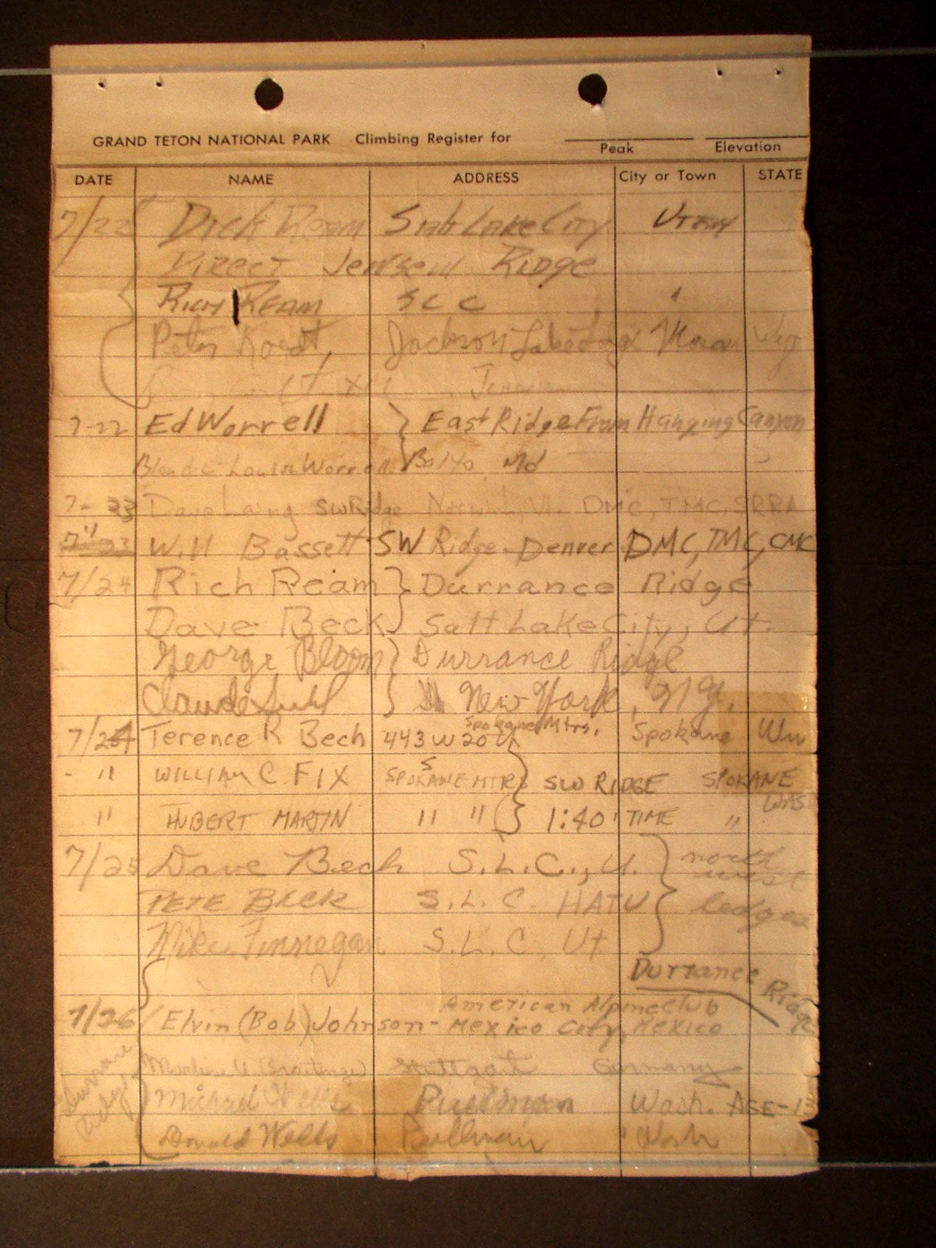 GRAND TETON NATIONAL PARK Climbing Register for
Peak Elevation
DATE NAME ADDRESS City or Town STATE
7/22 Dick Ream Salt Lake City Utah
Direct Jensen Ridge
Rich Ream SLC "
Peter Jackson Lake Moran Wyo
7-22 Ed Worrell } East Ridge From Hanging Canyon
Louise Worrell Balto Md
7-23 Dave Laing SW Ridge DMC, TMC,
7/23 Will Bassett SW Ridge - Denver DMC, TMC, CMC
7/24 Rich Ream } Durrance Ridge
Dave Beck } Salt Lake City, Ut.
George Bloom } Durrance Ridge
Claude Suhl } New York, N.Y.
Spokane Mtrs.
7/24 Terence R Bech 443 W 20th Spokane Wn
" WILLIAM C FIX SPOKANE MTRS SW RIDGE SPOKANE
WASH
" HUBERT MARTIN " " } 1:40 TIME "
7/25 Dave Bech S.L.C., U. } north
west
PETE BECK S.L.C. HATU ledges
Mike Finnegan S.L.C. Ut
Durrance Ridge
American Alpine Club
7/26 Elvin (Bob) Johnson - Mexico City, Mexico
Stuttgart Germany
Durrance Ridge
Michael Wells Pullman Wash. AGE-13
Donald Wells Pullman Wash